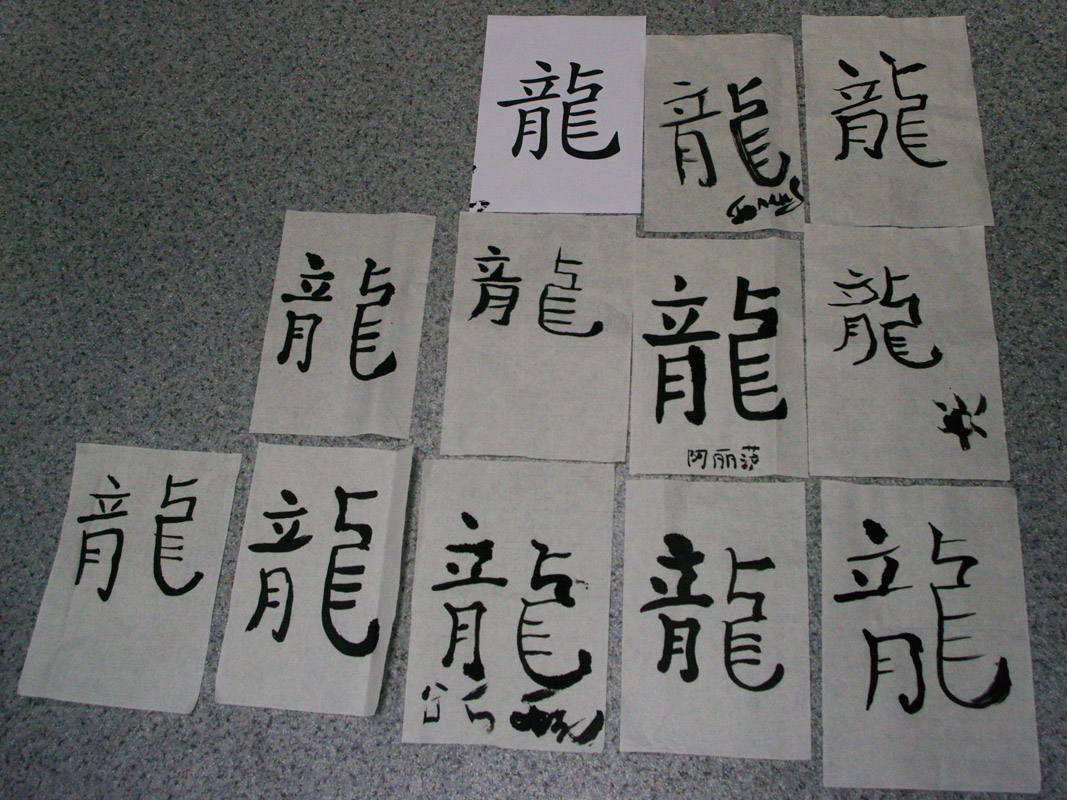 龍
龍
龍
龍
龍
龍
阿丽莎
龍
龍
龍
龍
龍
龍